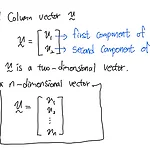 Column vector x
x = [x₁ → first component of
x₂] → second component of
x is a two-dimensional vector.
n-dimensional vector
x = [x₁
x₂
⋮
xₙ]